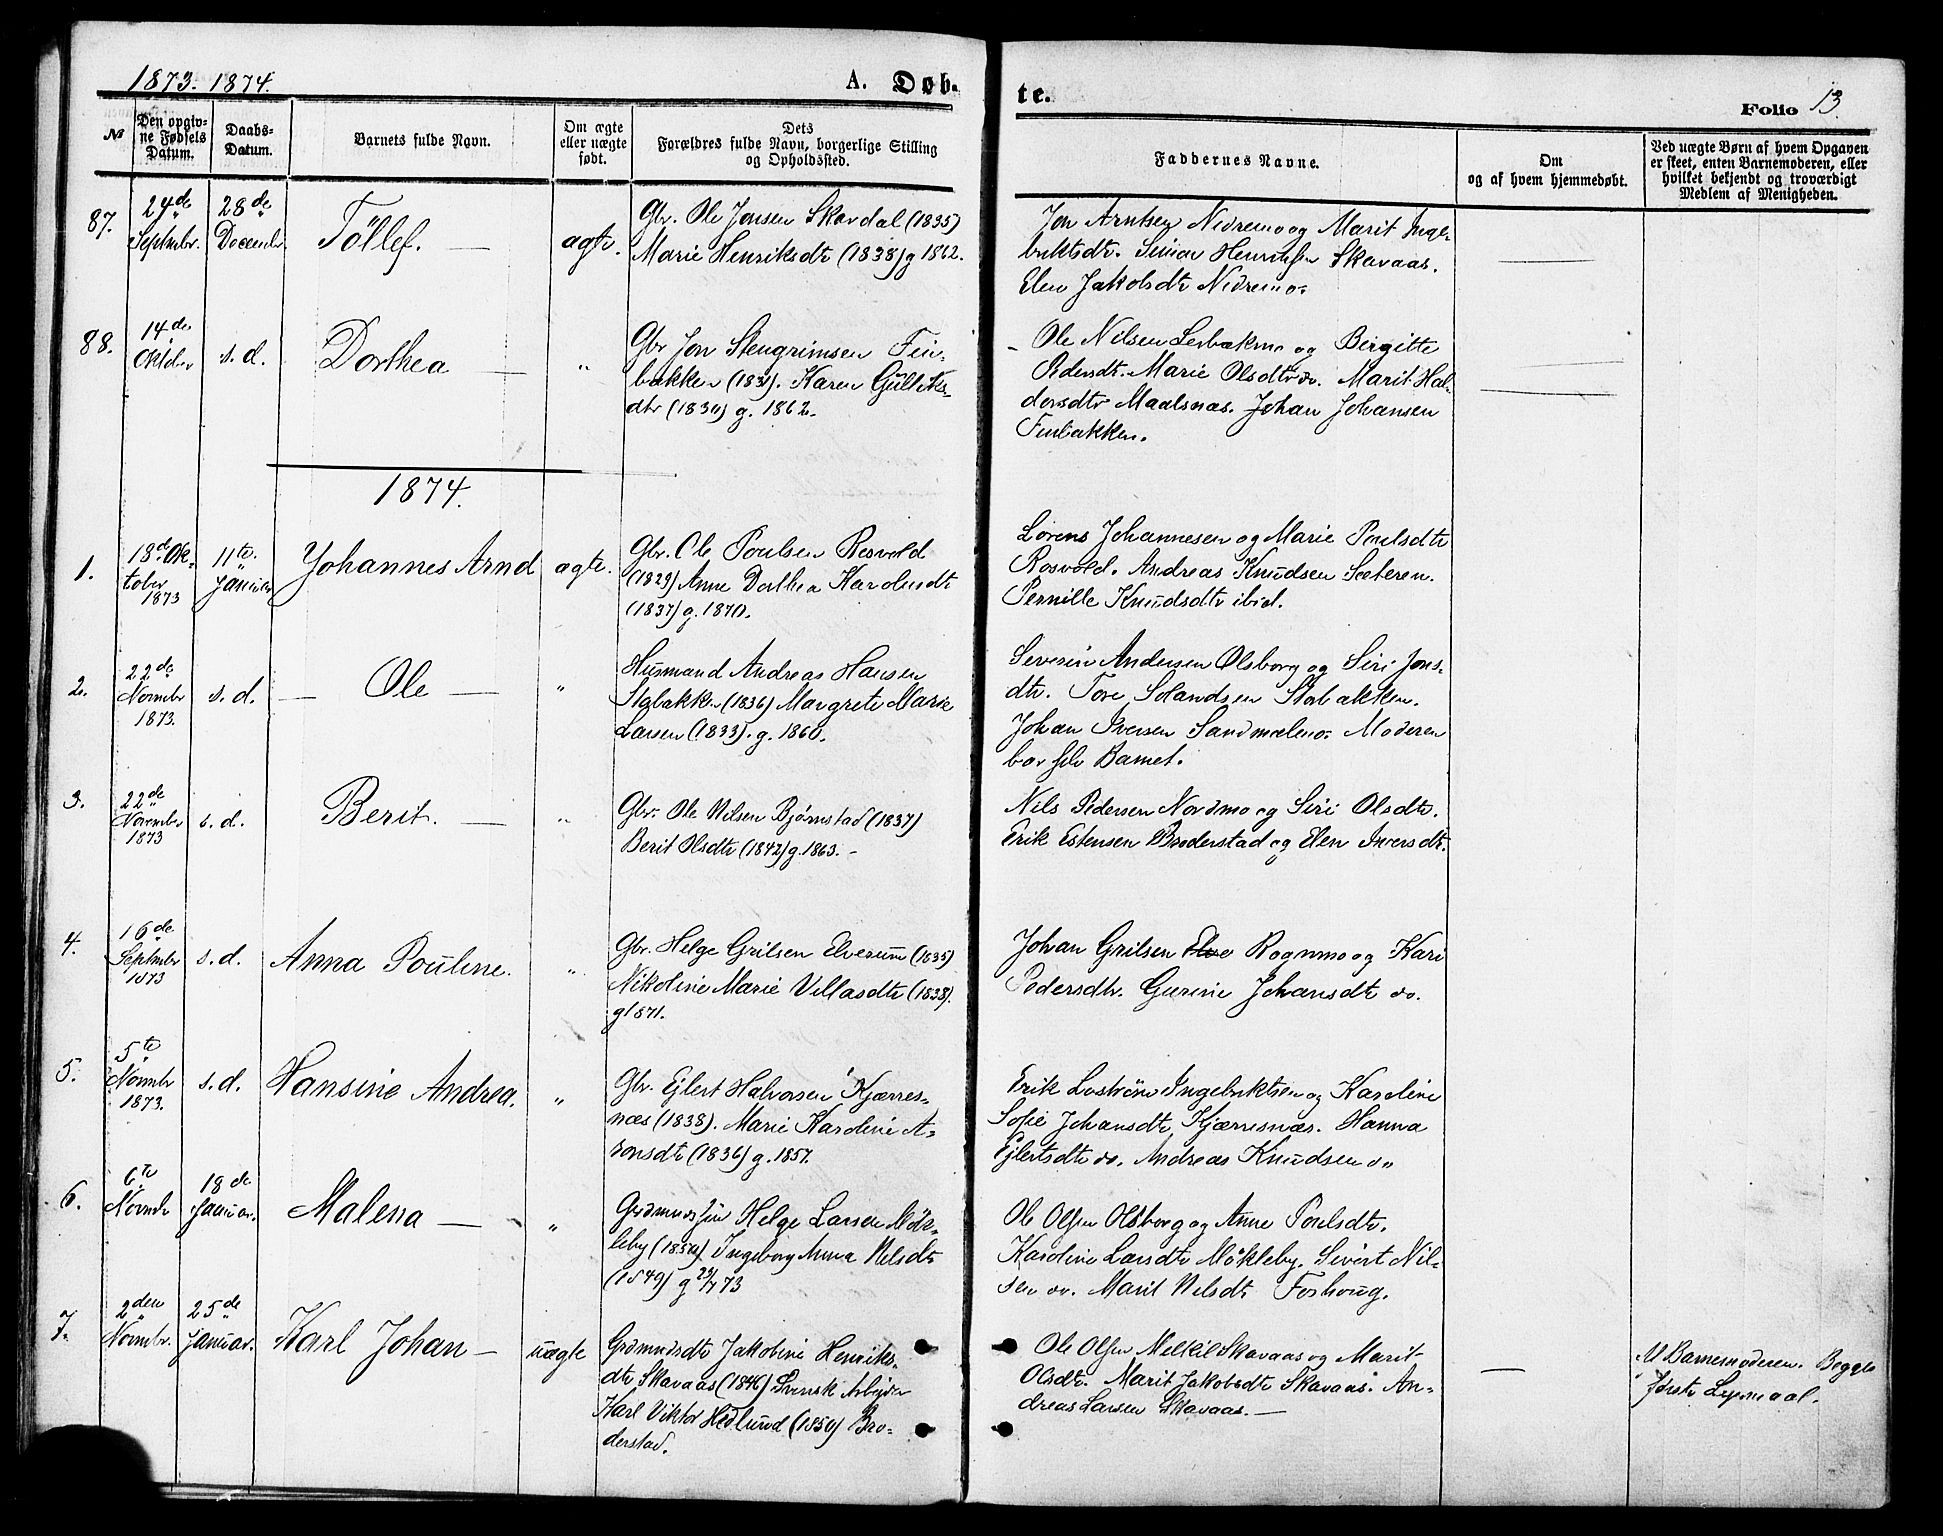 1873. 1874.
A. Døb-
te.
Folio 13.
№
Den opgiv-
ne Fødsels
Datum.
Daabs-
Datum.
Barnets fulde Navn.
Om ægte
eller uægte
født.
Dets
Forældres fulde Navn, borgerlige Stilling
og Opholdssted.
Faddernes Navne.
Om
og af hvem hjemmedøbt.
Ved uægte Børn af hvem Opgaven
er skeet, enten Barnemoderen, eller
hvilket bekjendt og troværdigt
Medlem af Menigheden.
87.
24de
Septmbr.
28de
Decembr.
Töllef. —
ægte.
Gbr. Ole Jonsen Skavdal (1835)
Marie Henriksdtr (1838) g 1862.
Jon Arntsen Nidremo og Marit Inge-
briktsdtr. Simon Henriksen Skavaas.
Elen Jakobsdtr Nidremo.
88.
14de
Oktobr
s. d.
Dorthea —
"
Gbr Jon Stengrimsen Fin-
bakken (1831). Karen Gulliks-
dtr (1830) g. 1862.
Ole Nilsen Lerbækmo og Birgitte
Pedersdt. Marie Olsdtr do. Marit Hal-
dorsdtr Maalsnæs. Johan Johansen
Finbakken.
1874.
1.
18de Ok-
tober
1873
11te
Januar
Johannes Arnd
ægte.
Gbr. Ole Poulsen Rosvold
(1829) Anne Dorthea Karolusdt
(1837) g. 1870.
Lorens Johannesen og Marie Poulsdtr
Rosvold. Andreas Knudsen Sæteren.
Pernille Knudsdtr ibid.
2.
22de
Novmbr
1873.
s. d.
— Ole —
"
Husmand Andreas Hansen
Stabakken (1836) Margrete Marie
Larsen (1833). g. 1860.
Severin Andersen Olsborg og Siri Jons-
dtr. Tore Solandsen Stabakken.
Johan Iversen Sandmælmo. Moderen
bar selv Barnet.
3.
22de
Novembr
1873
s. d.
Berit. —
"
Gbr. Ole Nilsen Bjørnstad (1837)
Berit Olsdtr (1842) g. 1863. —
Nils Pedersen Nordmo og Siri Olsdtr.
Erik Estensen Broderstad og Elen Iversdt.
4.
16de
Septmbr
1873
s. d.
Anna Pouline.
"
Gbr. Helge Grilsen Elverum (1835)
Nikoline Marie Villasdtr (1838).
g 1871.
Johan Grilsen Elve Rognmo og Kari
Pedersdtr. Gurine Johansdtr do.
5.
5te
Novmbr
1873.
s. d.
Hansine Andrea.
"
Gbr. Ejlert Halvorsen Kjærres-
næs (1838). Marie Karoline A-
ronsdtr (1836) g. 1857.
Erik Lostrøm Ingebriktsen og Karoline
Sofie Johansdtr Kjærresnæs. Hanna
Ejlertsdtr do. Andreas Knudsen do
6.
6te
Novmbr
18de
Januar.
Malena —
"
Grdmnds søn Helge Larsen Møk-
leby (1850) Ingeborg Anna Nilsdtr
(1849) g 29/7 73
Ole Olsen Olsborg og Anne Poulsdtr.
Karoline Larsdtr Møkleby. Sivert Nil-
sen do. Marit Nilsdtr Foshoug.
7.
2den
Novmbr.
25de
Januar.
Karl Johan —
uægte
Grdmndsdtr Jakobine Henriks-
dtr Skavaas (1846) Svensk Arbejder
Karl Viktor Hedlund (1850) Bro-
derstad.
Ole Olsen Melkil Skavaas og Marit
Olsdtr. Marit Jakobsdtr Skavaas. An-
dreas Larsen Skavaas. —
Af Barnemoderen. Begges
første Lejermaal.